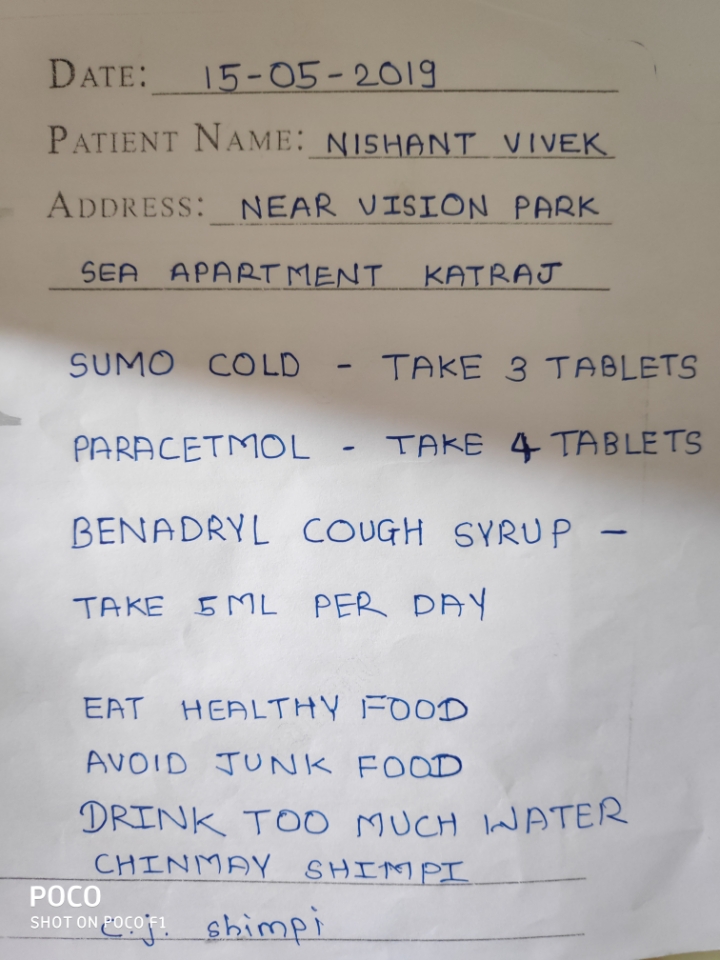 DATE: 15-05-2019
PATIENT NAME: NISHANT VIVEK
ADDRESS: NEAR VISION PARK
SEA APARTMENT KATRAJ
SUMO COLD - TAKE 3 TABLETS
PARACETMOL - TAKE 4 TABLETS
BENADRYL COUGH SYRUP -
TAKE 5 ML PER DAY
EAT HEALTHY FOOD
AVOID JUNK FOOD
DRINK TOO MUCH WATER
CHINMAY SHIMPI
POCO
SHOT ON POCO F1
c.j. shimpi